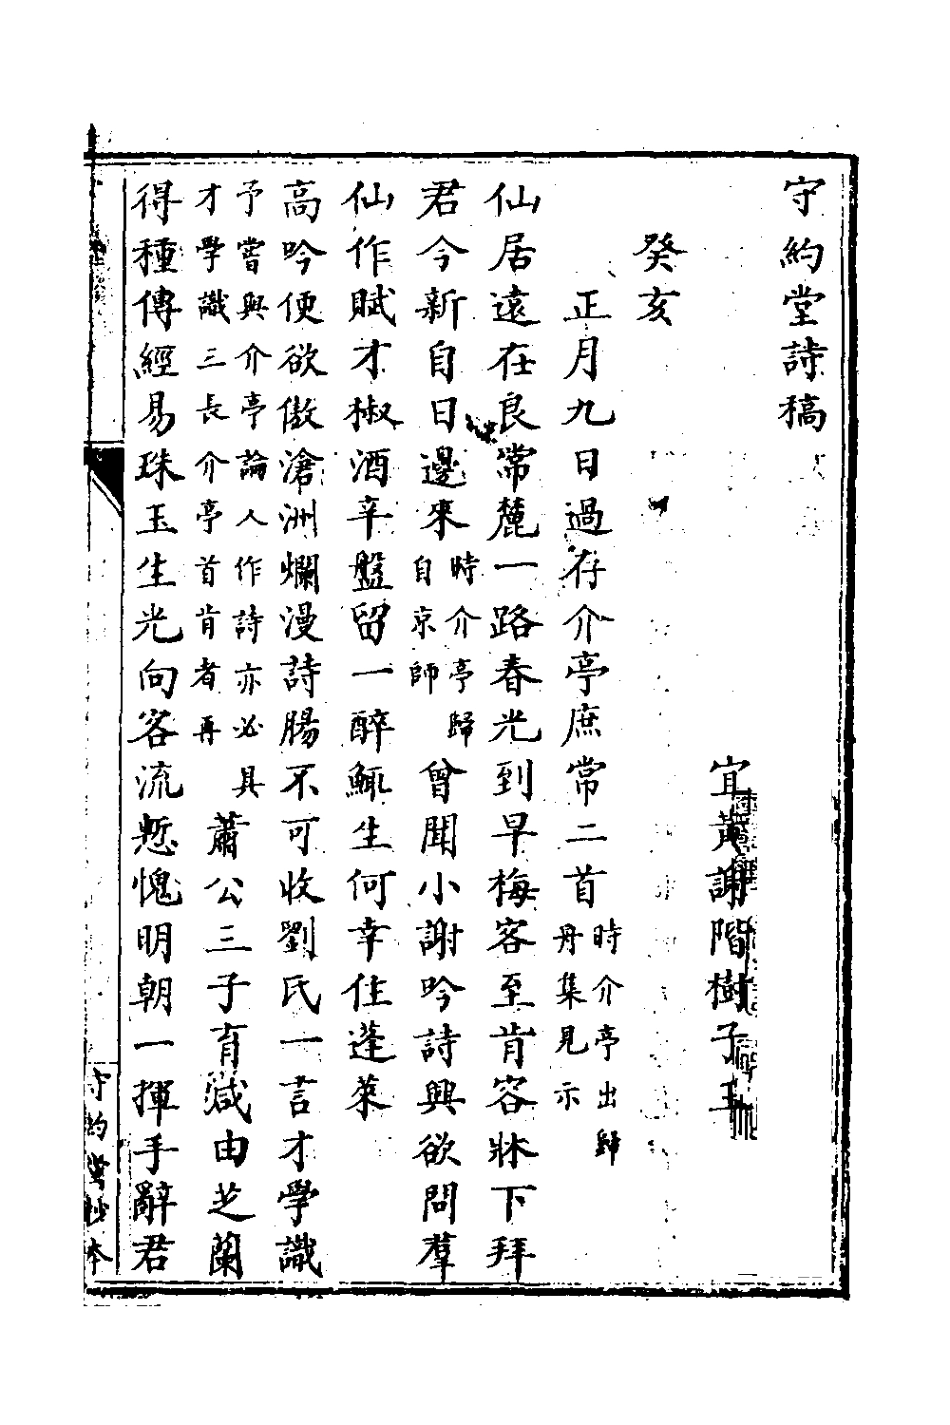 守約堂詩稿
宜黃謝階樹子玉
癸亥
正月九日過存介亭庶常二首時介亭出歸舟集見示
仙居遠在良常麓一路春光到早梅客至肯容牀下拜
君今新自日邊來時介亭歸自京師曾聞小謝吟詩興欲問羣
仙作賦才椒酒辛盤留一醉鯫生何幸住蓬萊
高吟便欲傲滄洲爛漫詩腸不可收劉氏一言才學識
予嘗與介亭論人作詩亦必具才學識三長介亭首肯者再蕭公三子育咸由芝蘭
得種傳經易珠玉生光向客流慙愧明朝一揮手辭君
守約堂抄本